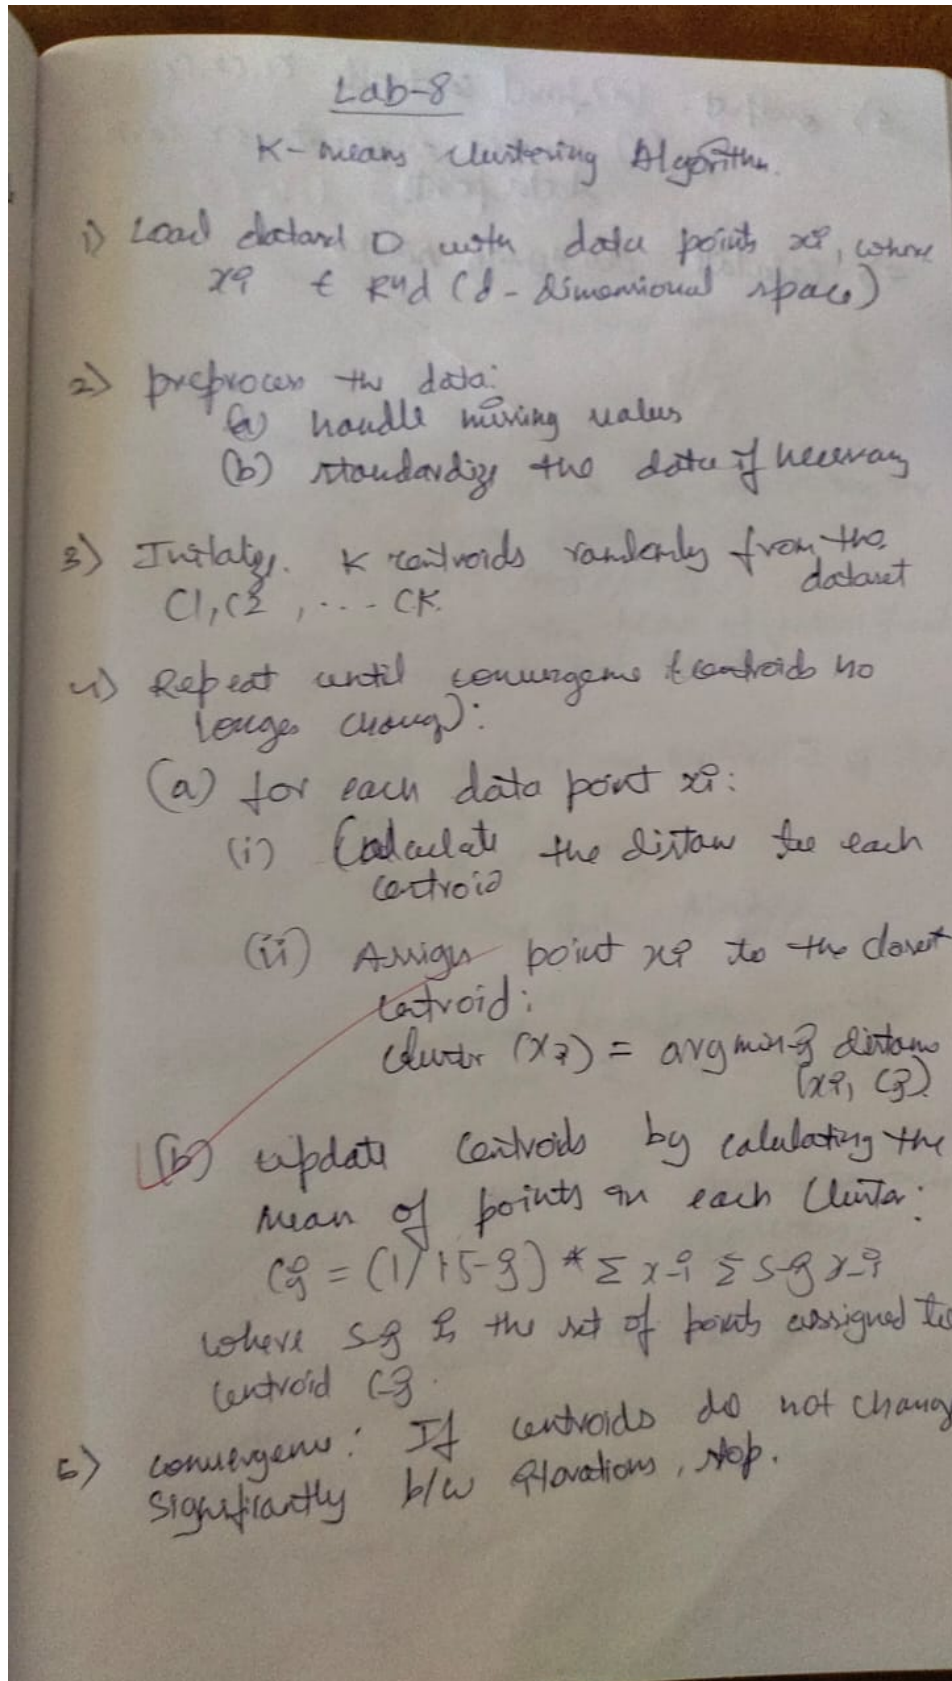 Lab-8
K-means Clustering Algorithm.
1) Load dataset D with data points xi, where
xi ∈ R^d (d-dimensional space)
2) preprocess the data:
(a) handle missing values
(b) standardize the data if necessary
3) Initialize. K centroids randomly from the
dataset
C1, C2, .... CK.
4) Repeat until convergence (centroids no
longer change):
(a) for each data point xi:
(i) Calculate the distance to each
centroid
(ii) Assign point xi to the closest
centroid:
cluster (xi) = argmin-j distance
(xi, cj)
(b) update centroids by calculating the
mean of points in each cluster:
Cj = (1/|S-j) * Σ x-i Σ S-j x-i
where S-j is the set of points assigned to
centroid C-j.
5) convergence: If centroids do not change
significantly b/w iterations, stop.